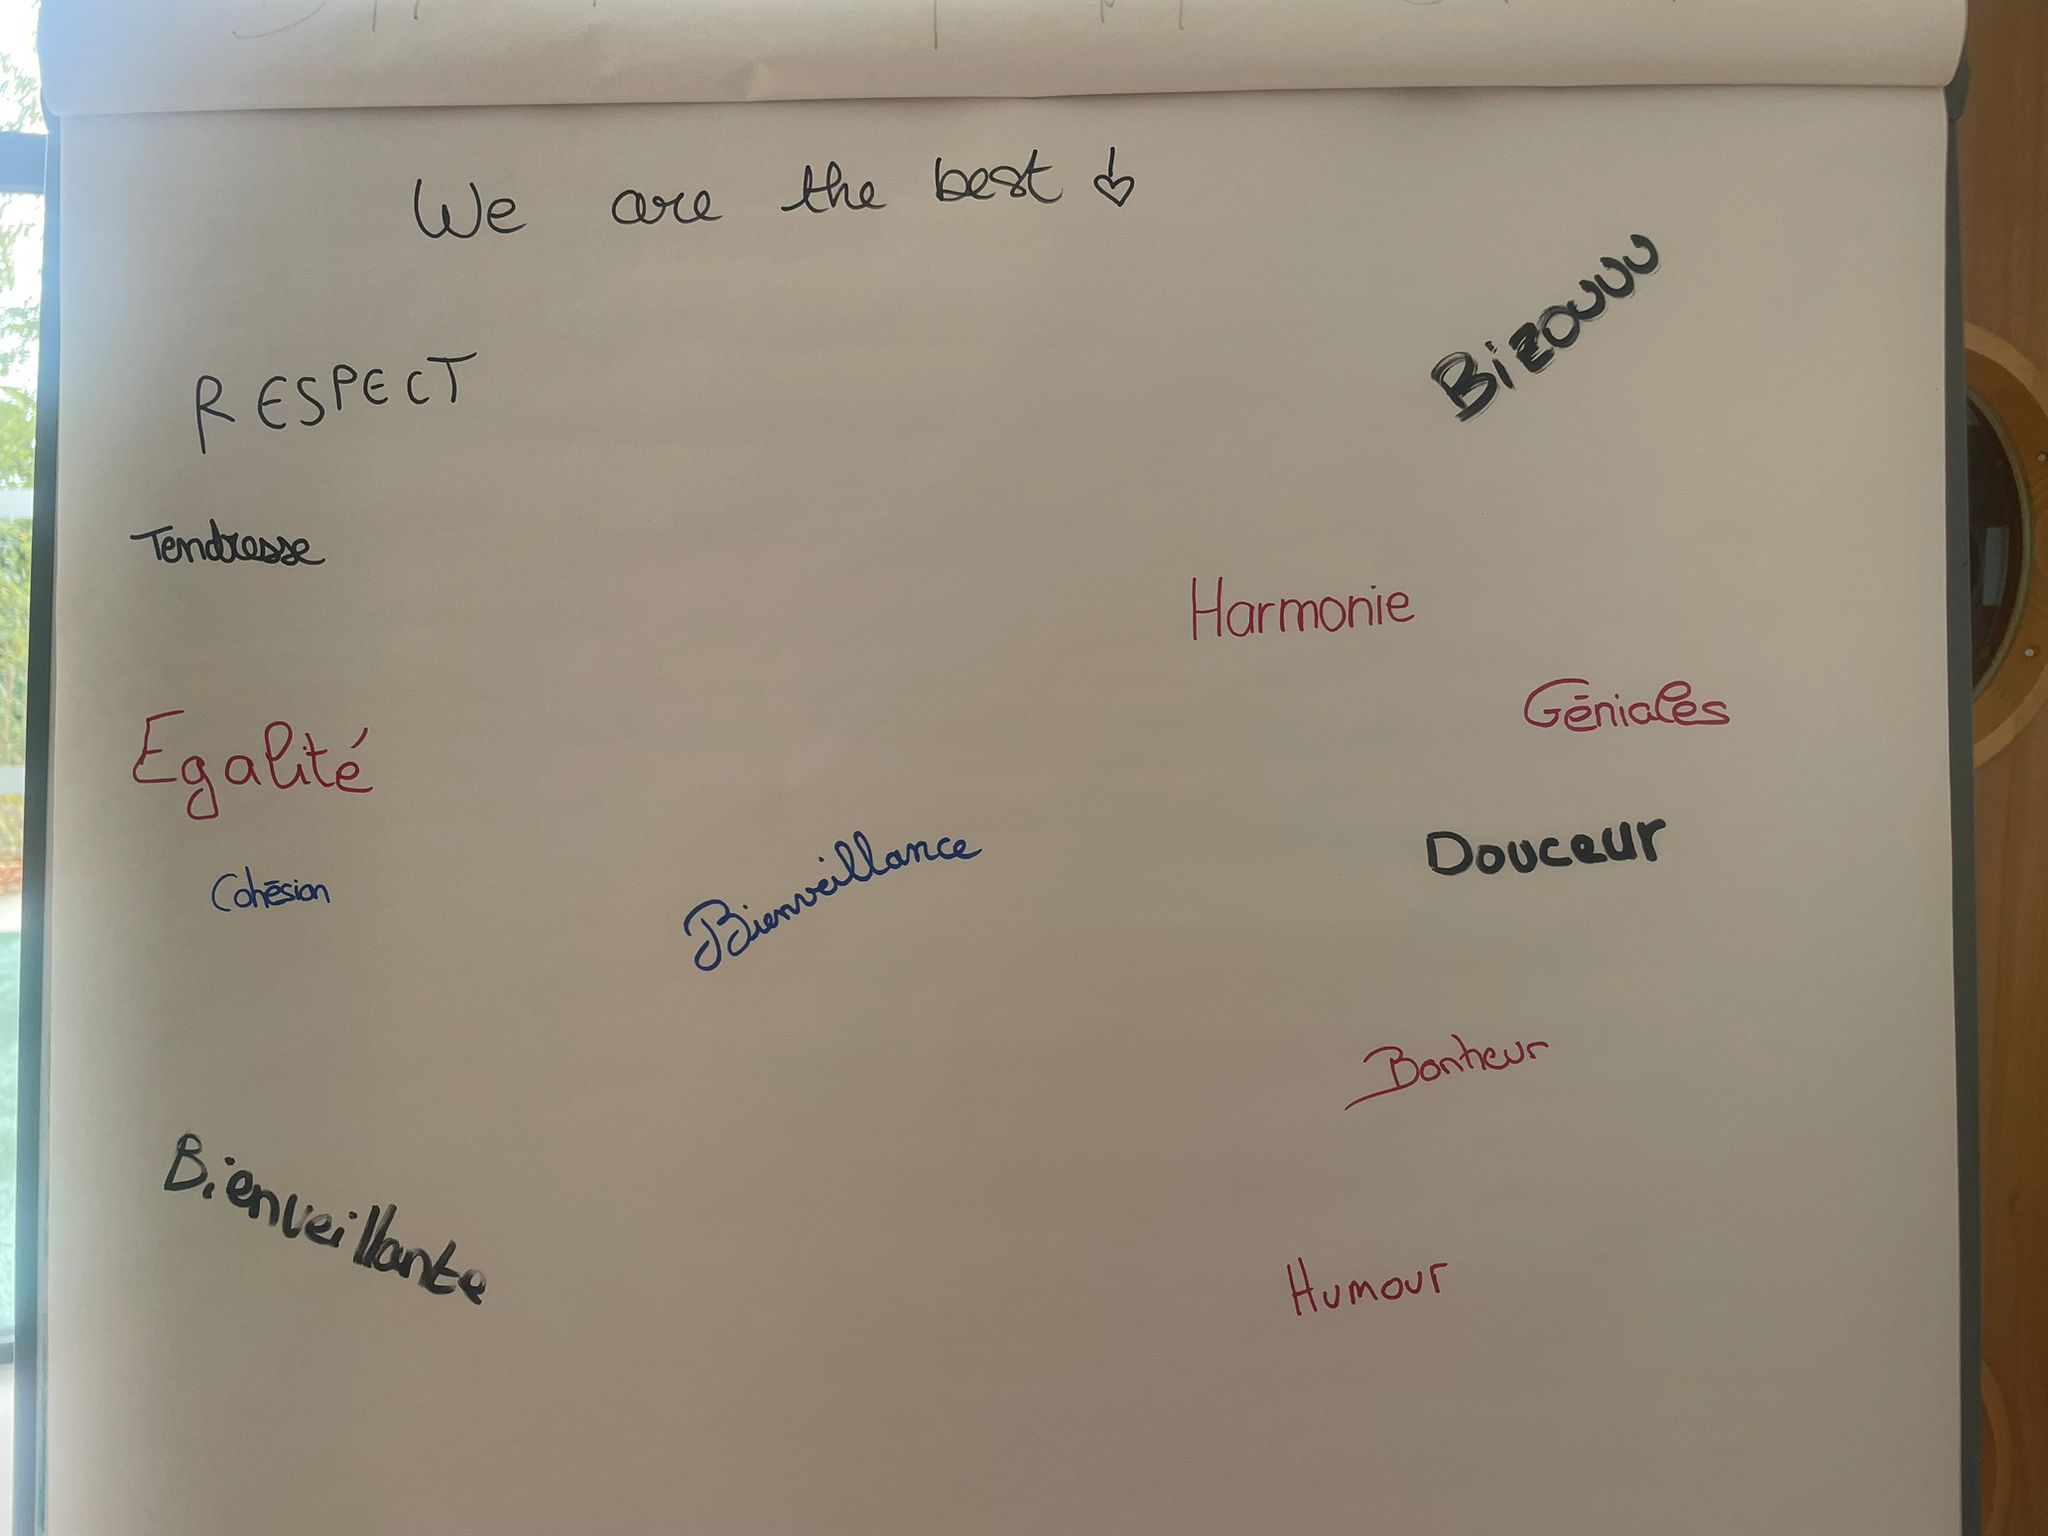 We are the best
Bizouuu
RESPECT
Tendresse
Harmonie
Géniales
Egalité
Douceur
Cohésion
Bienveillance
Bonheur
Bienveillante
Humour